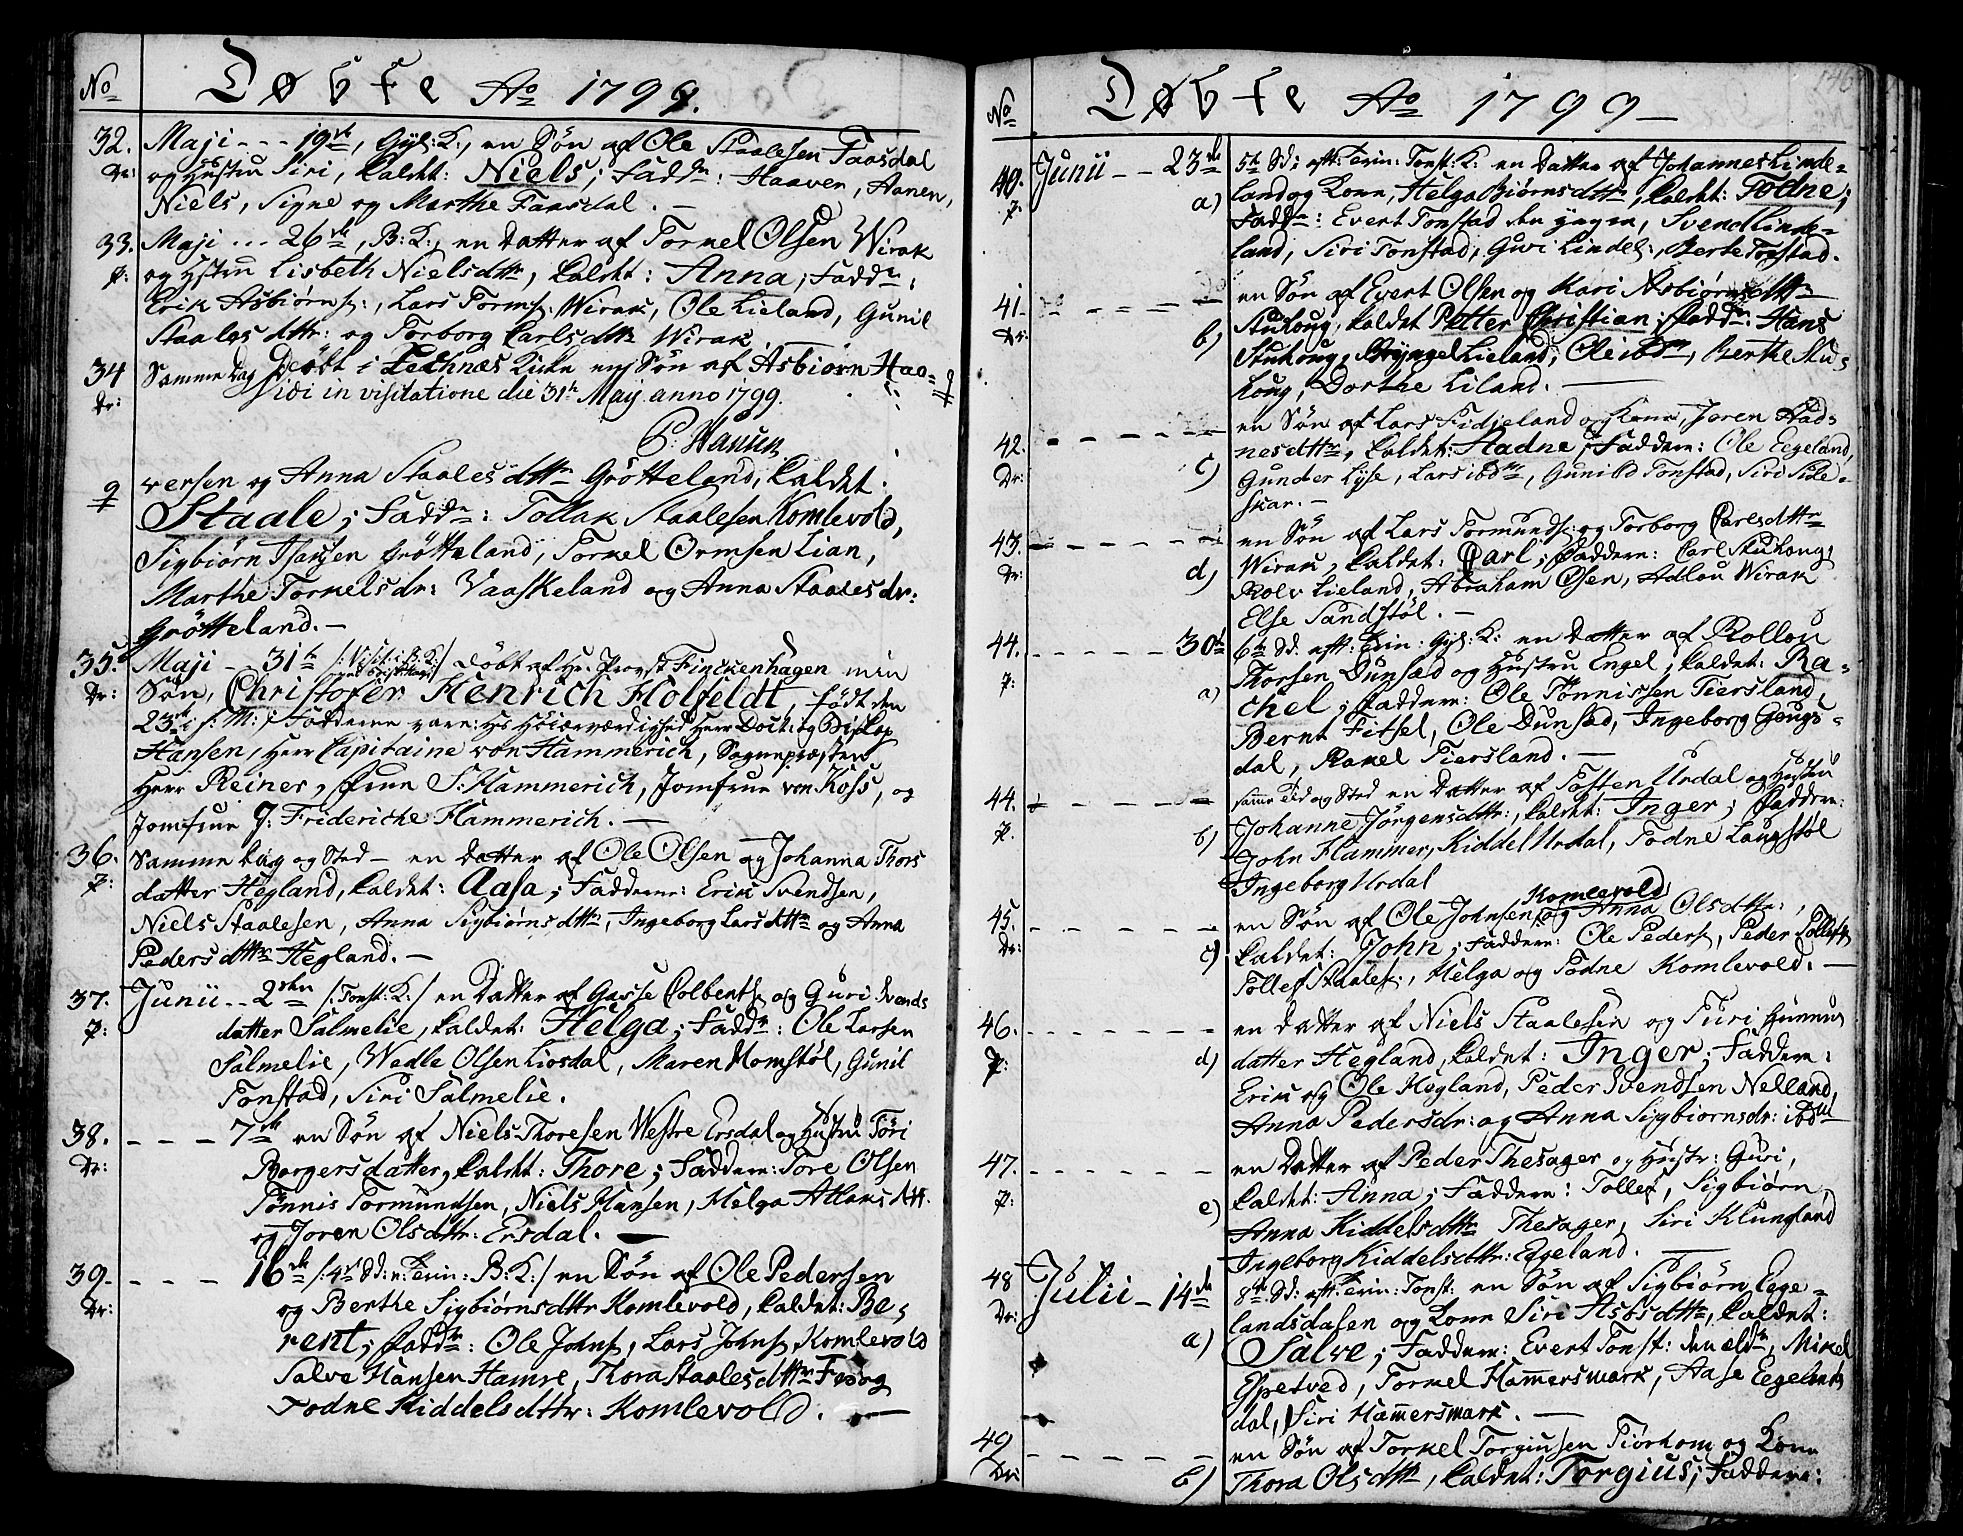 No Døbte Ao 1799.
32. Maji - - - 19de, Gyl: K:, en Søn af Ole Staalesen Faasdal
Dr: og Hustru Siri, kaldet: Niels; Fadd: Haaven, Aanen,
Niels, Signe og Marthe Faasdal. —
33. Maji - - - 26de, B: K:, en Datter af Tormel Olsen Wirak
p: og Hstru Lisbeth Nielsdttr, kaldet: Anna; Fadd:
Erik Asbiørns:, Lars Torms: Wirak, Ole Lieland, Gunil
Staalesdttr: og Torborg Carlsdttr Wirak. —
34 Samme Dag Døbt i Fedhnæs Kirke en Søn af Asbiørn Haa=
Dr: Vidi in visitatione die 31te Maij anno 1799.
P: Hansen
versen og Anna Staalesdttr Grøtteland, kaldet:
Staale; Fadd: Tollak Staalesen Komlevold,
Sigbiørn Hansen Grøtteland, Torkel Ormsen Lian,
Marthe Torkelsdr: Vaaskeland og Anna Staalesdr:
Grøtteland. —
35. Maji - 31te /: Visit: B: K:/ Døbt af Hr: Provst Finckenhagen min
Dr: Søn, Christofer Henrich Holfeldt, født den
23de f: M:; Fadderne vare: Hs Høiærværdighed Herr Doct: og Biskop
Hansen, Herr Capitaine von Hammerich, Sognepræsten
Herr Reiner, Frue S: Hammerich, Jomfrue von Koss, og
Jomfrue J: Friderike Hammerich. —
36. Samme Dag og Sted — en Datter af Ole Olsen og Johanna Thors
p: datter Hegland, kaldet: Aasa; Faddere: Erik Svendsen,
Niels Staalesen, Anna Sigbiørnsdttr, Ingeborg Larsdttr og Anna
Pedersdttr Hegland. —
37. Junii - - 2den /: Tonst: K:/ en Datter af Gasse Colbents: og Guri Svends
p: datter Salmelie, kaldet: Helga; Fadd: Ole Larsen
Salmelie, Wedle Olsen Liosdal, Maren Homstøl, Gunil
Tonstad, Siri Salmelie.
38. - - - 7de en Søn af Niels Thoresen Westre Ersdal og Hustru Tøri
Dr: Borgersdatter, kaldet: Thore; Faddere: Tore Olsen
Tønnis Tormundsen, Niels Hansen, Helga Atlaksdtt.
og Joren Olsdttr: Ersdal. —
39. - - - 16de /: 4de Sd: e: Trin: B: K:/ en Søn af Ole Pedersen
Dr: og Berthe Sigbiørnsdttr Komlevold, kaldet: Be=
rent; Fadd: Ole Johns, Lars Johns Komlevold
Salve Hansen Hamre, Thora Staalesdttr Fed og
Todne Kiddelsdttr: Komlevold. —
146
No Døbte Ao 1799 —
40. Junii - - 23de 5te Sd: aft: Trin: Tonst: K: en Datter af Johannes Linde=
p: a) land og Kone, Helga Biørnsdttr, kaldet: Todne;
Fadd: Evert Tonstad den yngre, Svend Linde=
land, Siri Tonstad, Guri Lindel:, Berte Tonstad.
41. - - - - - en Søn af Evert Olsen og Kari Asbiørnsdttr
Dr: b) Stuhoug, kaldet Petter Christian; Fadd: Hans
Stuhoug, Bryngel Lieland, Ole ibdm, Berthe Stu=
houg, Dorthe Liland. —
42. - - - - - en Søn af Lars Fidjeland og Kone, Joren Aad=
Dr: c) nesdttr, kaldet: Aadne; Faddere: Ole Eegeland,
Gunder Lyse, Lars ibdm, Gunild Tonstad, Siri Sile=
skar. —
43. - - - - - en Søn af Lars Tormunds: og Torborg Carlsdttr
Dr: d) Wirak, kaldet: Carl; Faddere: Carl Stuhoug,
Rolv Lieland, Abraham Osen, Adlou Wirak
Else Sandstøl. —
44. 30te 6te Sd: aft: Trin: Gyl: K: en Datter af Rollou
p: a) Thorsen Dunsæd og Hustru Engel; kaldet: Ra=
chel; Faddere: Ole Tønnissen Tiersland,
Bernt Fitsel, Ole Dunsæd, Ingeborg Gougs=
dal, Rakel Tiersland. —
44. - - - - samme Tid og Sted en Datter af Tosten Urdal og Hustru
p. b) Johanne Jørgensdttr:, kaldet: Inger; Faddere:
John Hammer, Kiddel Urdal, Todne Laugstøl
Ingeborg Urdal
Komlevold
45. - - - - - en Søn af Ole Johnsen og Anna Olsdttr:,
Dr: c) kaldet: John; Faddere: Ole Peders, Peder Tollefs
Tollef Staales:, Helga og Todne Komlevold. —
46. - - - - - en Datter af Niels Staalesen og Turi Gunnus
p: d) datter Hegland, kaldet: Inger; Faddere:
Erik og Ole Hegland, Peder Svendsen Nelland,
Anna Pedersdr: og Anna Sigbiørnsdr: ibdm
47. - - - - - en Datter af Peder Thesager og Hustr: Guri,
p: e) kaldet: Anna; Faddere: Tollef, Sigbiørn,
Anna Kiddelsdttr Thesager, Siri Klungland
Ingeborg Kiddelsdttr: Egeland. —
48 Julii - 14de 8de Sd: aft: Trin: Tonst: en Søn af Sigbiørn Eege=
Dr: a) landsdalen og Kone Siri Asbsdttr, kaldet:
Salve; Faddere: Evert Tonst: den eldr, Mikel
Espetved, Tormel Hamersmark, Aase Eegelands
dal, Siri Hamersmark. —
49 - - - - - en Søn af Torkel Torgiusen Tiørhom og Kone
Dr: b) Thora Olsdttr, kaldet: Torgius; Faddere: